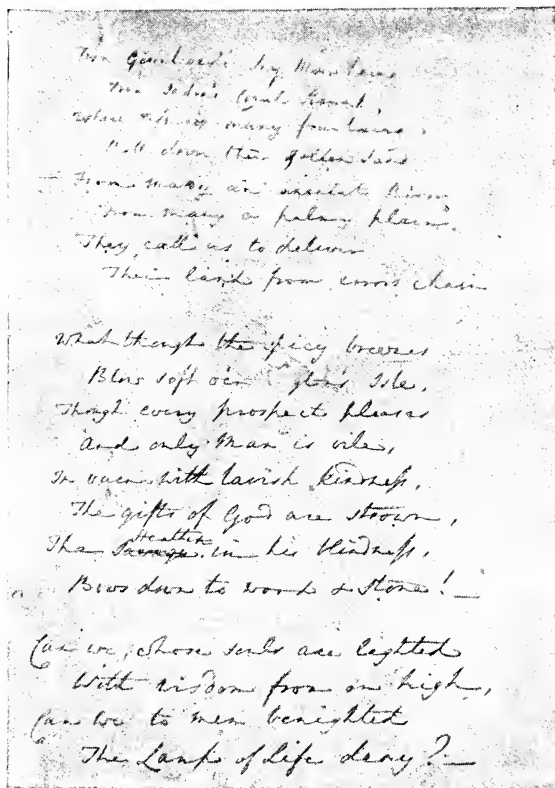 From Greenland's Icy Mountains
From India's Coral Strand,
Where fountains,
Roll down their golden Sand
From many an ancient River
From many a palmy plain.
They call us to deliver
Their land from errors chain
What though the spicy breezes
Blow soft o'er Isle,
Though every prospect pleases
And only Man is vile,
In vain with lavish kindness,
The gifts of God are strown,
Heathen
The Savage in his blindness,
Bows down to wood & stone! —
Can we, whose souls are lighted
With wisdom from on high,
Can we to men benighted
The Lamp of Life deny? —